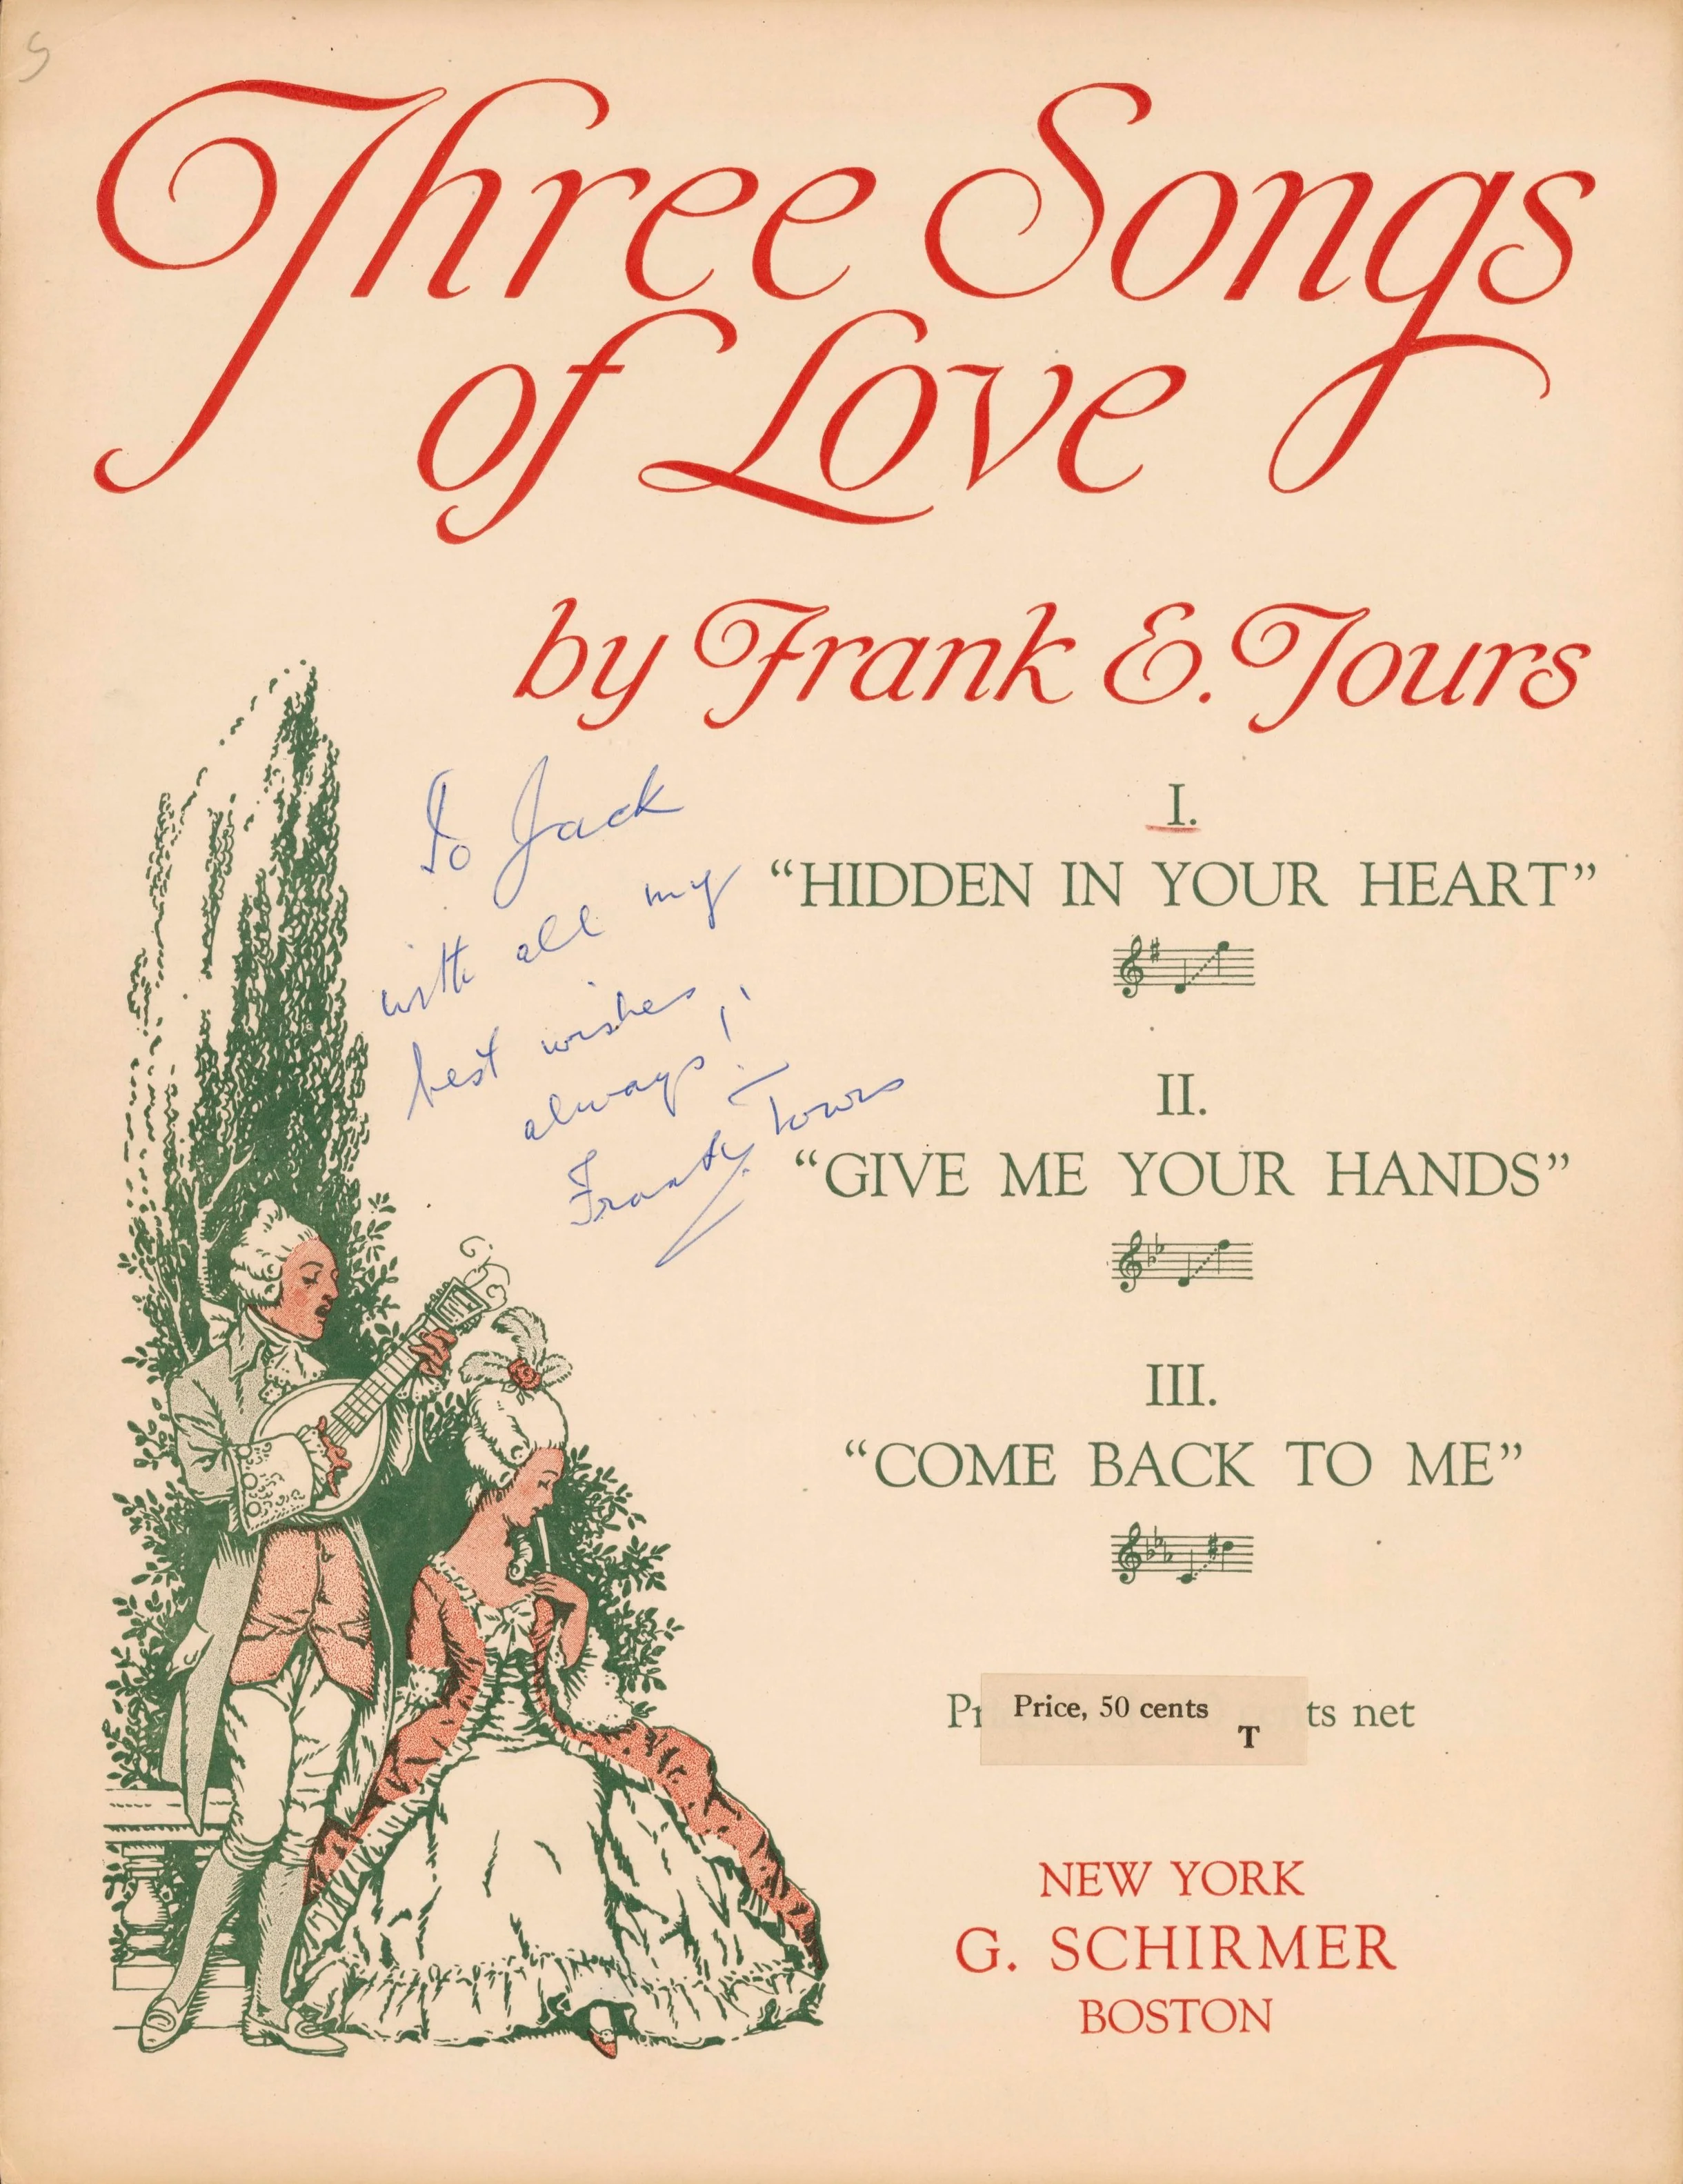 Three Songs
of Love
by Frank E. Tours
To Jack
with all my
best wishes
always!
Frank Tours
I.
“HIDDEN IN YOUR HEART”
II.
“GIVE ME YOUR HANDS”
III.
“COME BACK TO ME”
Price, 50 cents
T
ts net
NEW YORK
G. SCHIRMER
BOSTON